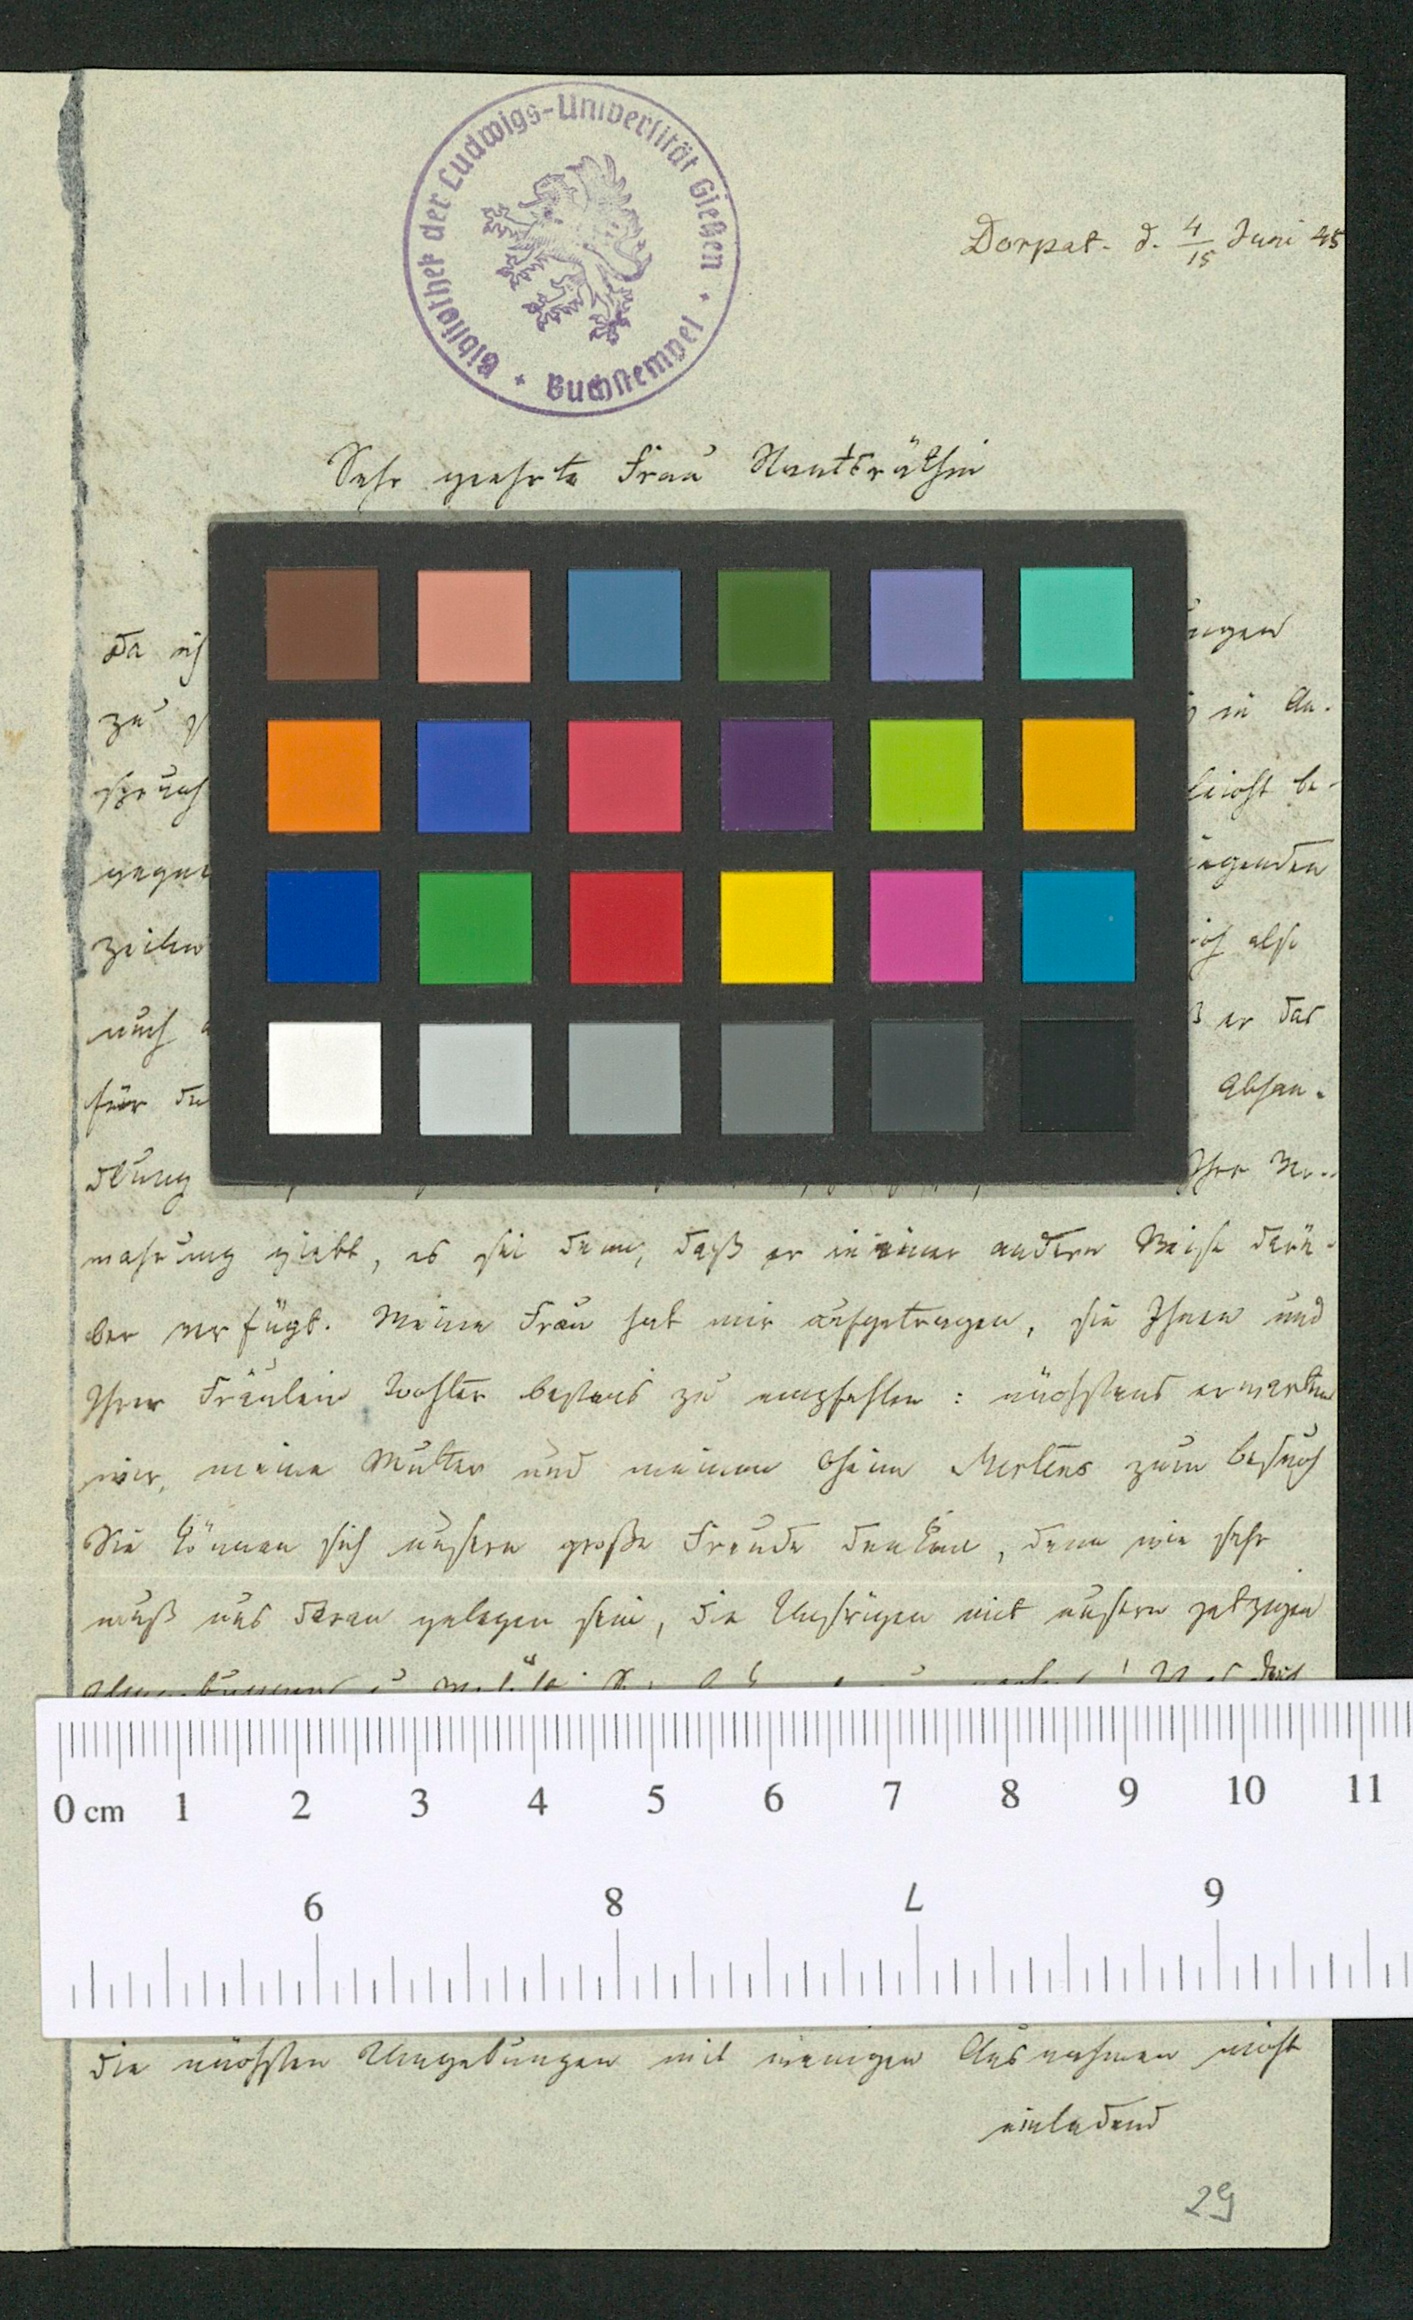 Bibliothek der Ludwigs-Universität Gießen + Buchstempel +
Dorpat. d. 4/15 Juni 45
Sehr geehrte Frau Staatsräthin
Da ich
ungen
zu
in An-
spruch
leicht be-
gegne
iegenden
Zeilen
ich also
auch
ß er das
für de
Abhan-
dlung
Ihre Ver-
wahrung giebt, es sei denn, daß er in einer andern Weise darü-
ber verfügt. Meine Frau hat mir aufgetragen, sie Ihnen und
Ihrer Fräulein Tochter bestens zu empfehlen: nächstens erwarten
wir, meine Mutter und meinen Oheim Mertens zum Besuch
Sie können sich unsere große Freude denken, denn wie sehr
muß uns daran gelegen sein, die Unsrigen mit unsern jetzigen
0 cm 1 2 3 4 5 6 7 8 9 10 11
6 7 8 9
die nächsten Umgebungen mit wenigen Ausnahmen nicht
einladend
29